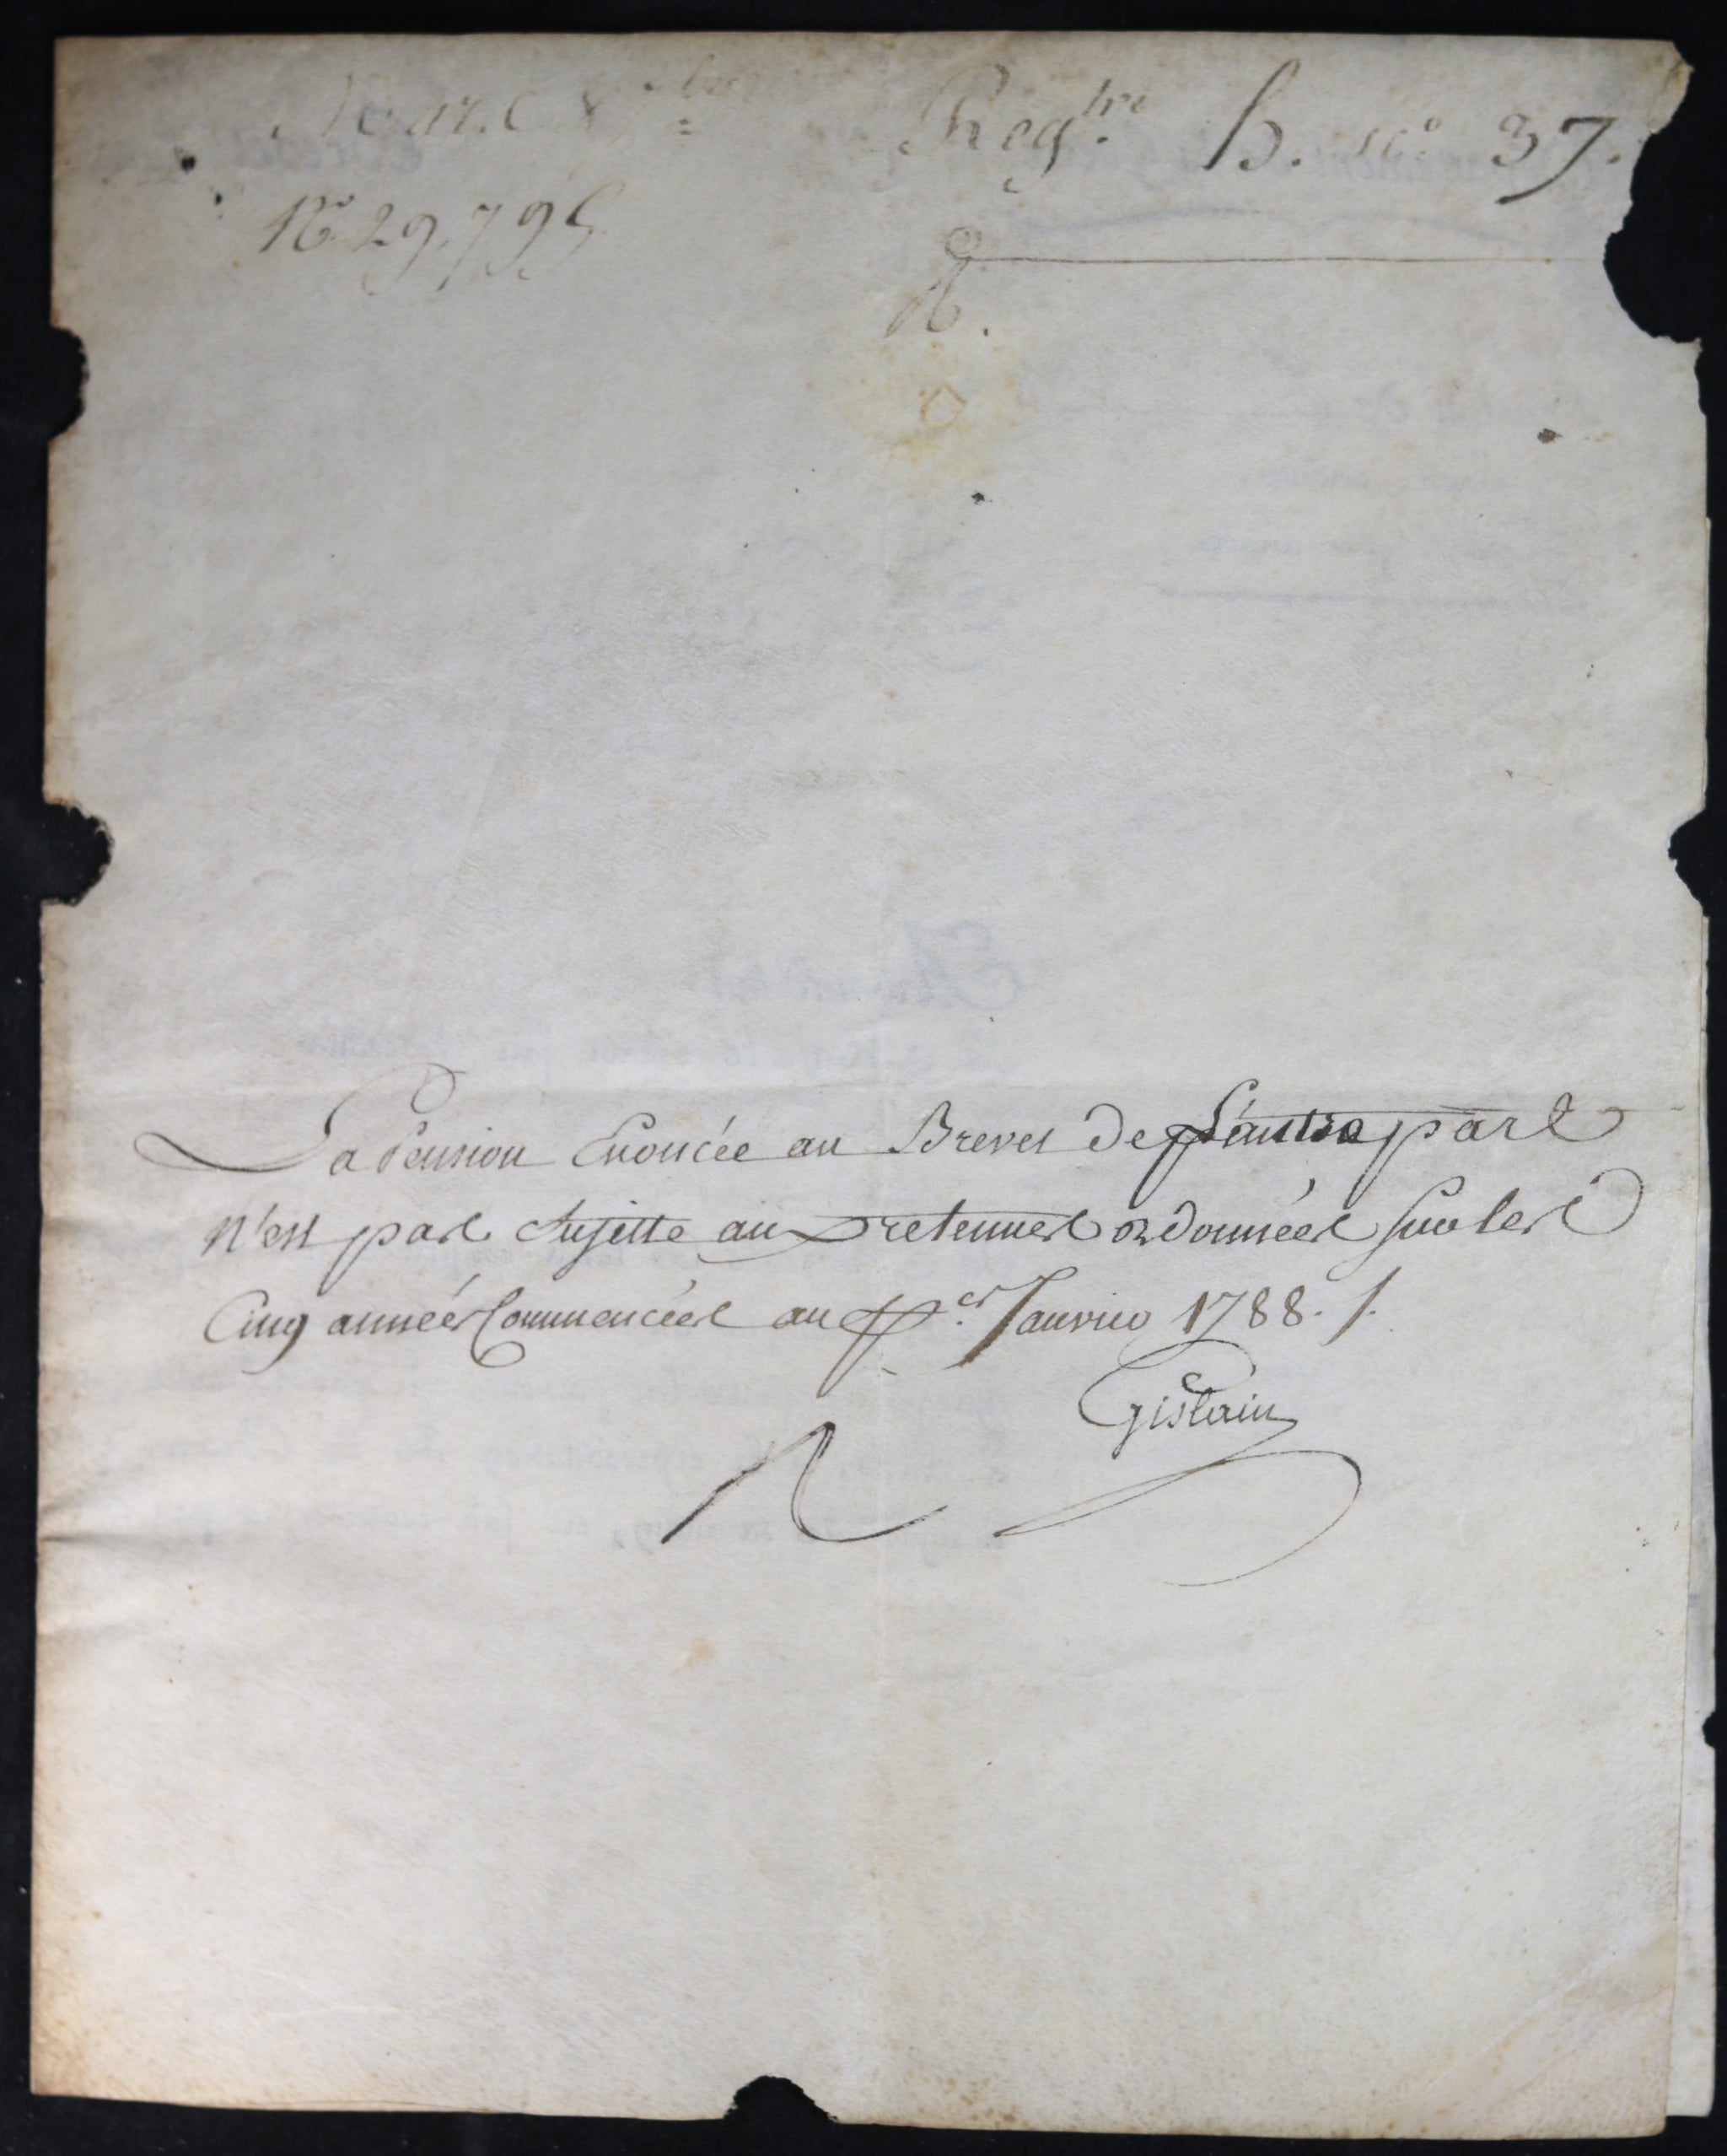 Reg.tre h. no. 37.
No. 29,795
La Pension Enoncée au Brevet de l'autre part
N'est pas Sujette aux retenues ordonnées sur les
Cinq années Commencées au p.er Janvier 1788. /.
Gislain